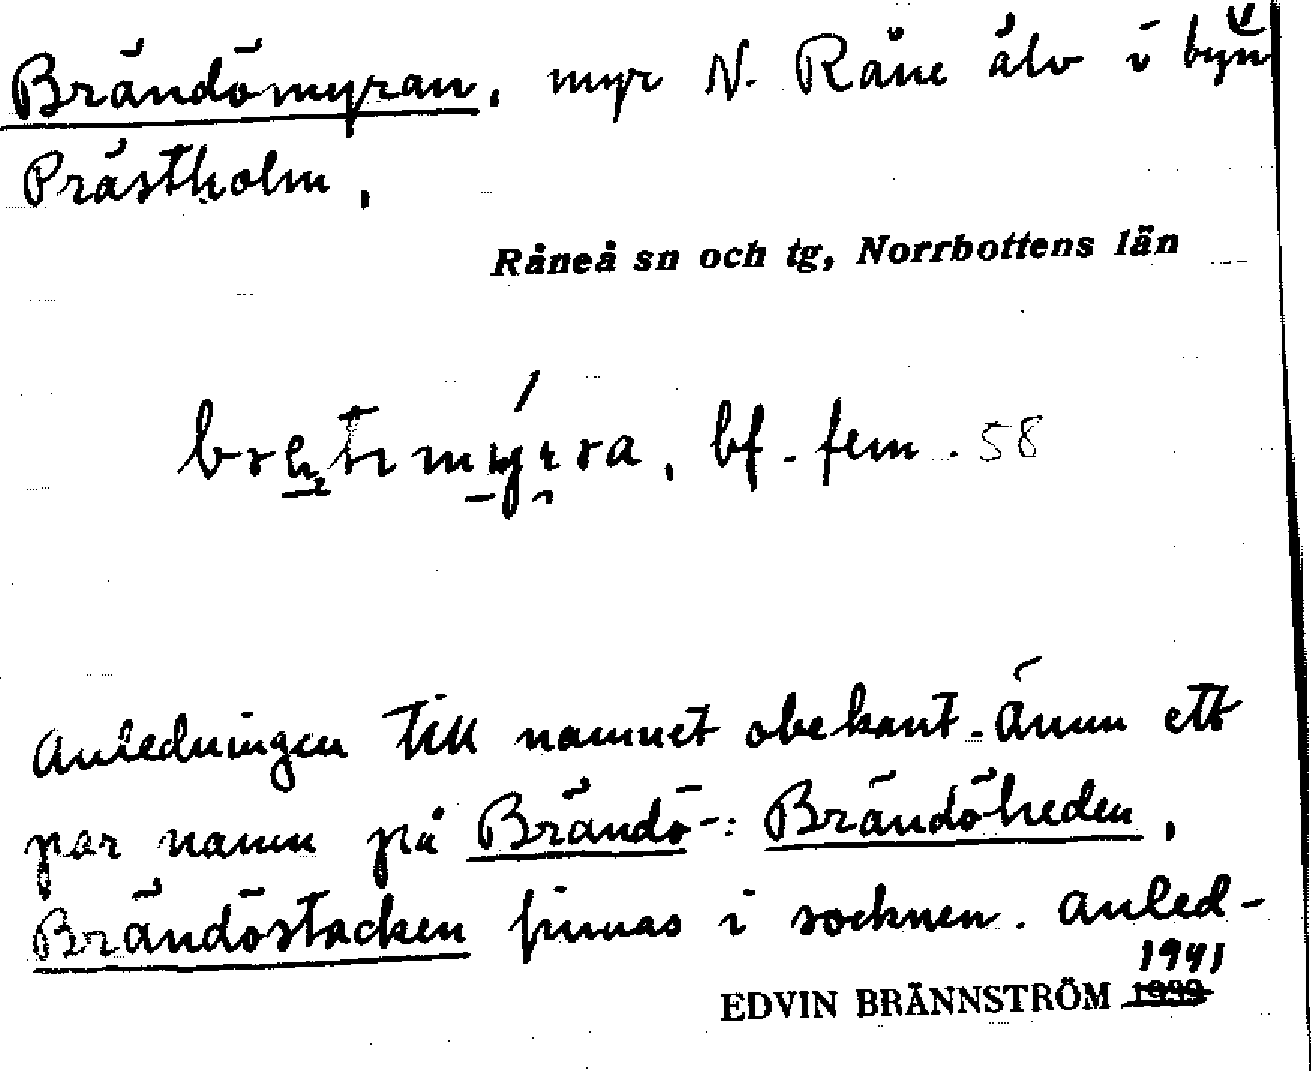 Brändömyran, myr N. Råne älv i byn
Prästholm,
Råneå sn och tg, Norrbottens län
bf. fem. 58
Anledningen till namnet obekant. Ännu ett
par namn på Brändö-: Brändöheden,
Brändöstacken finnas i socknen. Anled-
1941
EDVIN BRÄNNSTRÖM 1939